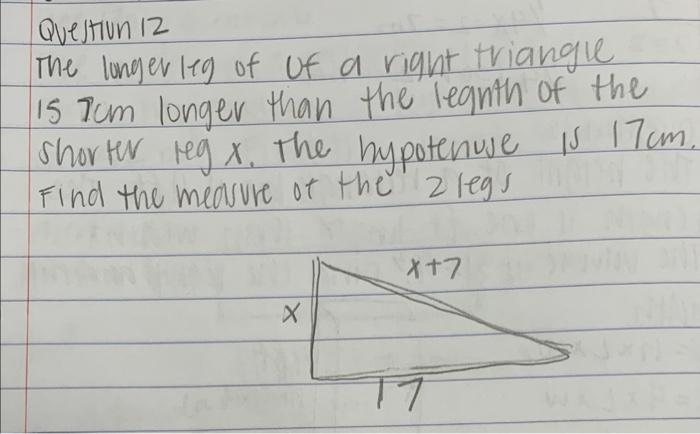 Question 12
The longer leg of of a right triangle
is 7cm longer than the legnth of the
shorter leg x. The hypotenuse is 17cm.
Find the measure of the 2 legs
x+7
x
17